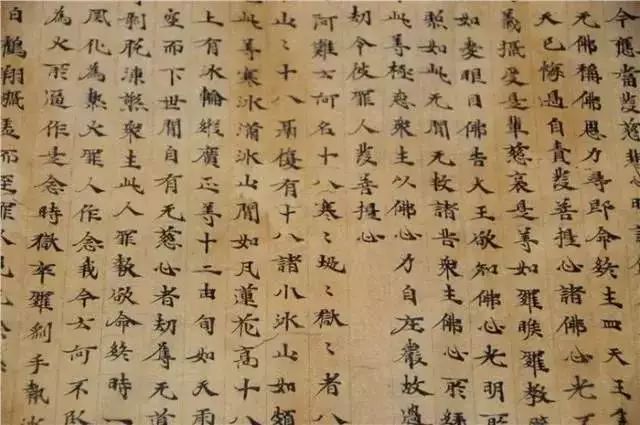 令應當發慈悲
无佛稱佛恩力尋即命終生四天王
天已悔過自責發善提心諸佛心光
義攝受是輩慈哀是等如羅睺羅教
如愛眼目佛告大王欲知佛心光明所
照如此无間无救諸苦衆生佛心所緣
此等極惡衆生以佛心力自庄嚴故過
劫令彼罪人發善提心
阿難云何名十八寒〻地〻獄〻者八
山〻十八鬲復有十八諸小冰山如頗
此等寒冰滿冰山間如凡蓮花高十八
上有冰輪縱廣正等十二由旬如天雨
空而下世間自有无慈心者劫辱无道
剝脫凍煞衆生此人罪報欲命終時一
風化為熱火罪人作念我今云何不臥
為火所逼作是念時獄卒羅剎手執冰
白鶴翔而至罪人